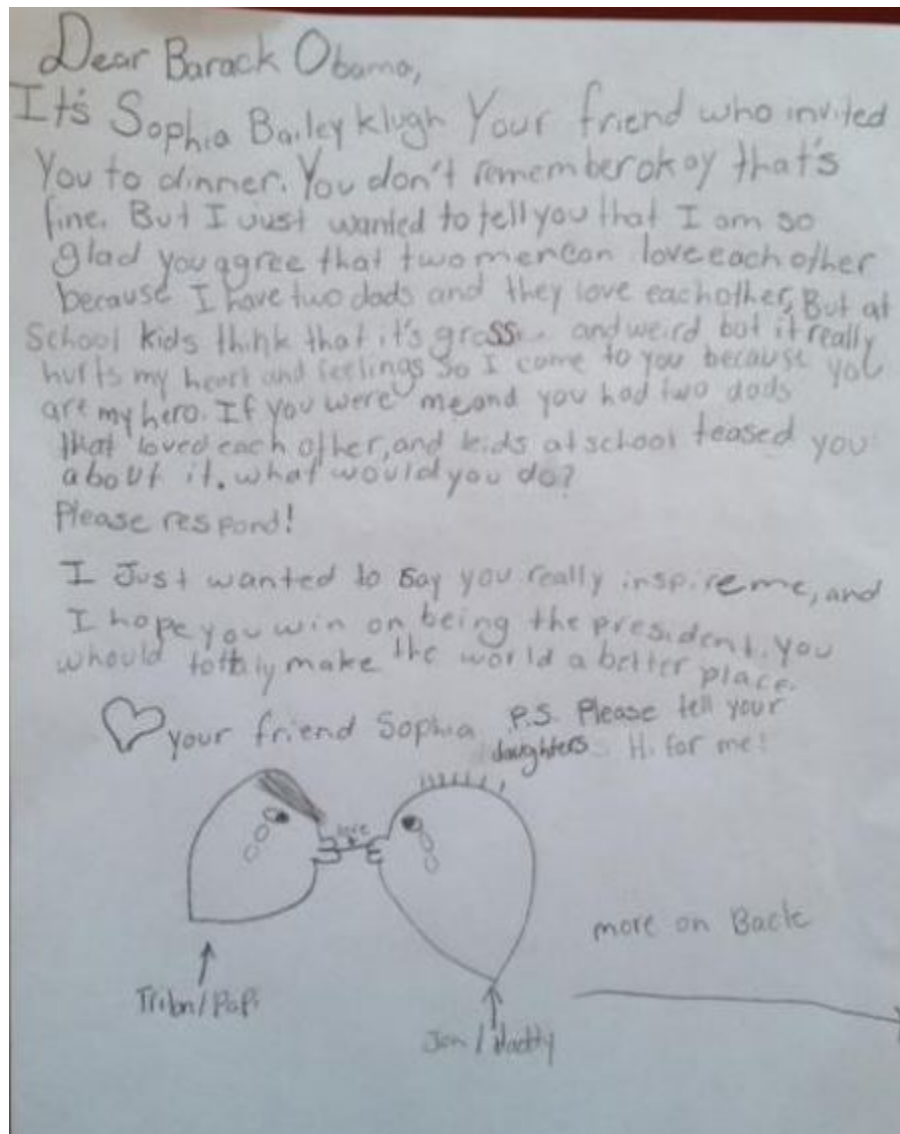 Dear Barack Obama,
It's Sophia Bailey Klugh Your friend who invited
You to dinner. You don't remember okay that's
fine. But I Just wanted to tell you that I am so
glad you agree that two men can love each other
because I have two dads and they love each other, But at
School kids think that it's gross and weird but it really
hurts my heart and feelings So I come to you because you
are my hero. If you were me and you had two dads
that loved each other, and kids at school teased you
about it. what would you do?
Please respond!
I Just wanted to say you really inspire me, and
I hope you win on being the president. you
whould tottaly make the world a better place.
your friend Sophia P.S. Please tell your
daughters Hi for me!
love
more on Back
/ Papi
Jon / daddy